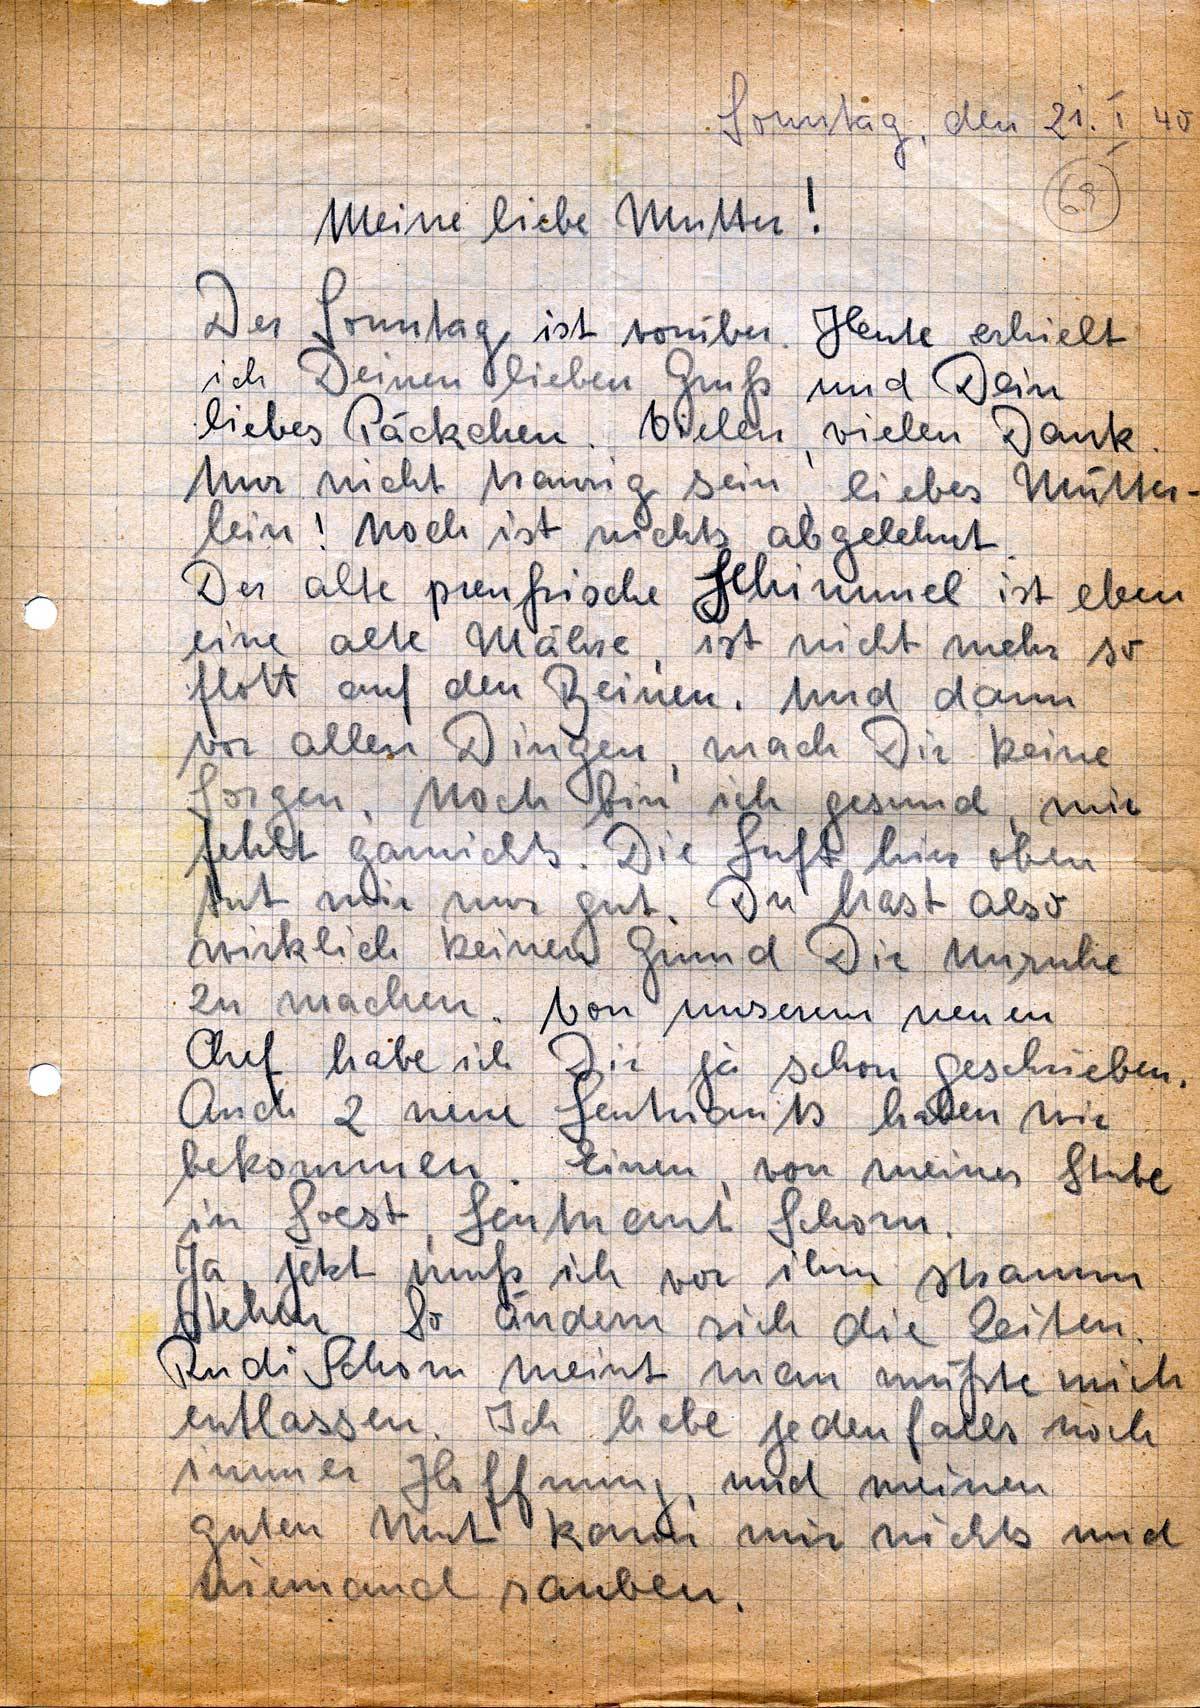 Sonntag, den 21. I 40
69
Meine liebe Mutter!
Der Sonntag ist vorüber. Heute erhielt
ich Deinen lieben Gruß und Dein
liebes Päckchen. Vielen, vielen Dank.
Nur nicht traurig sein, liebes Mütter-
lein! Noch ist nichts abgelehnt.
Der alte preußische Schimmel ist eben
eine alte Mähre, ist nicht mehr so
flott auf den Beinen. Und dann
vor allen Dingen, mach Dir keine
Sorgen. Noch bin ich gesund, mir
fehlt garnichts. Die Luft hier oben
tut mir nur gut. Du hast also
wirklich keinen Grund Dir Unruhe
zu machen. Von unserem neuen
Chef habe ich Dir ja schon geschrieben.
Auch 2 neue Leutnants haben wir
bekommen. Einen, von meiner Stube
in Soest, Leutnant Schorn.
Ja, jetzt muß ich vor ihm stramm
stehen. So ändern sich die Zeiten.
Rudi Schorn meint man müßte mich
entlassen. Ich habe jedenfalls noch
immer Hoffnung, und meinen
guten Mut kann mir nichts und
niemand rauben.